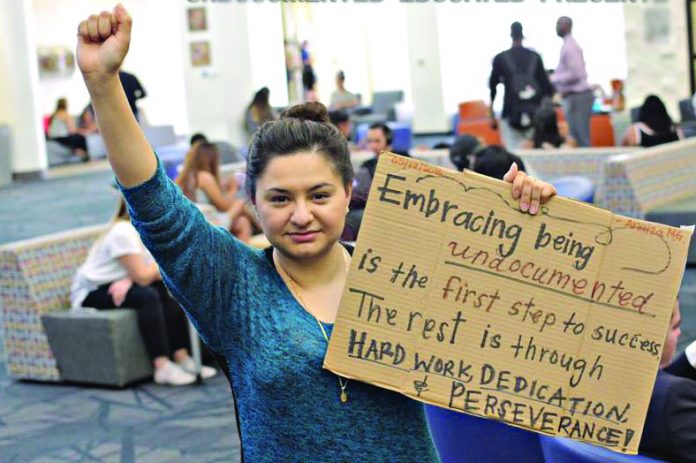 Embracing being
undocumented
is the first step to success
The rest is through
HARD WORK, DEDICATION,
& PERSEVERANCE!